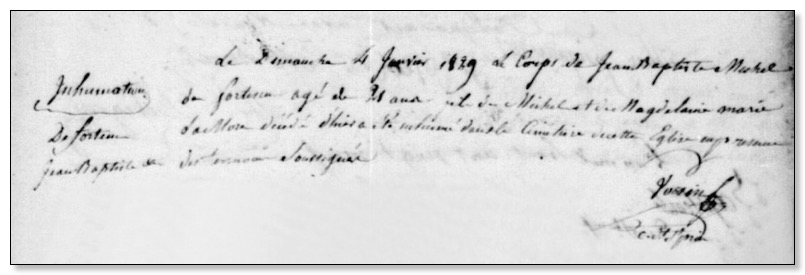 Inhumation
De fortin
Jean Baptiste de
Le Dimanche 4 Janvier 1829 le Corps de Jean Baptiste Michel
de fortin agé de 21 ans et de Michel et de Magdelaine marie
décédé d'hier a été inhumé dans le Cimetière de cette Eglise en presence
des temoins Soussignés